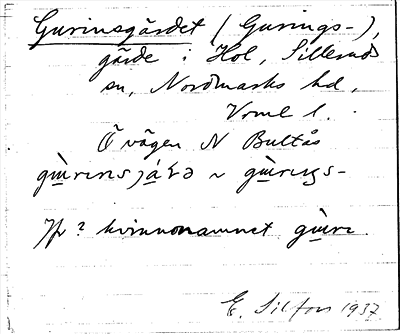 Gurinsgärdet (Gurings-),
gärde i Hol, Sillerud
sn, Nordmarks hd,
Vrml l.
Ö vägen N Bultås
gɯ̀rɩns ~ gɯ̀rɩŋs-
Jfr ? kvinnonamnet gɯ̀rɩ.
E. Silfors 1937